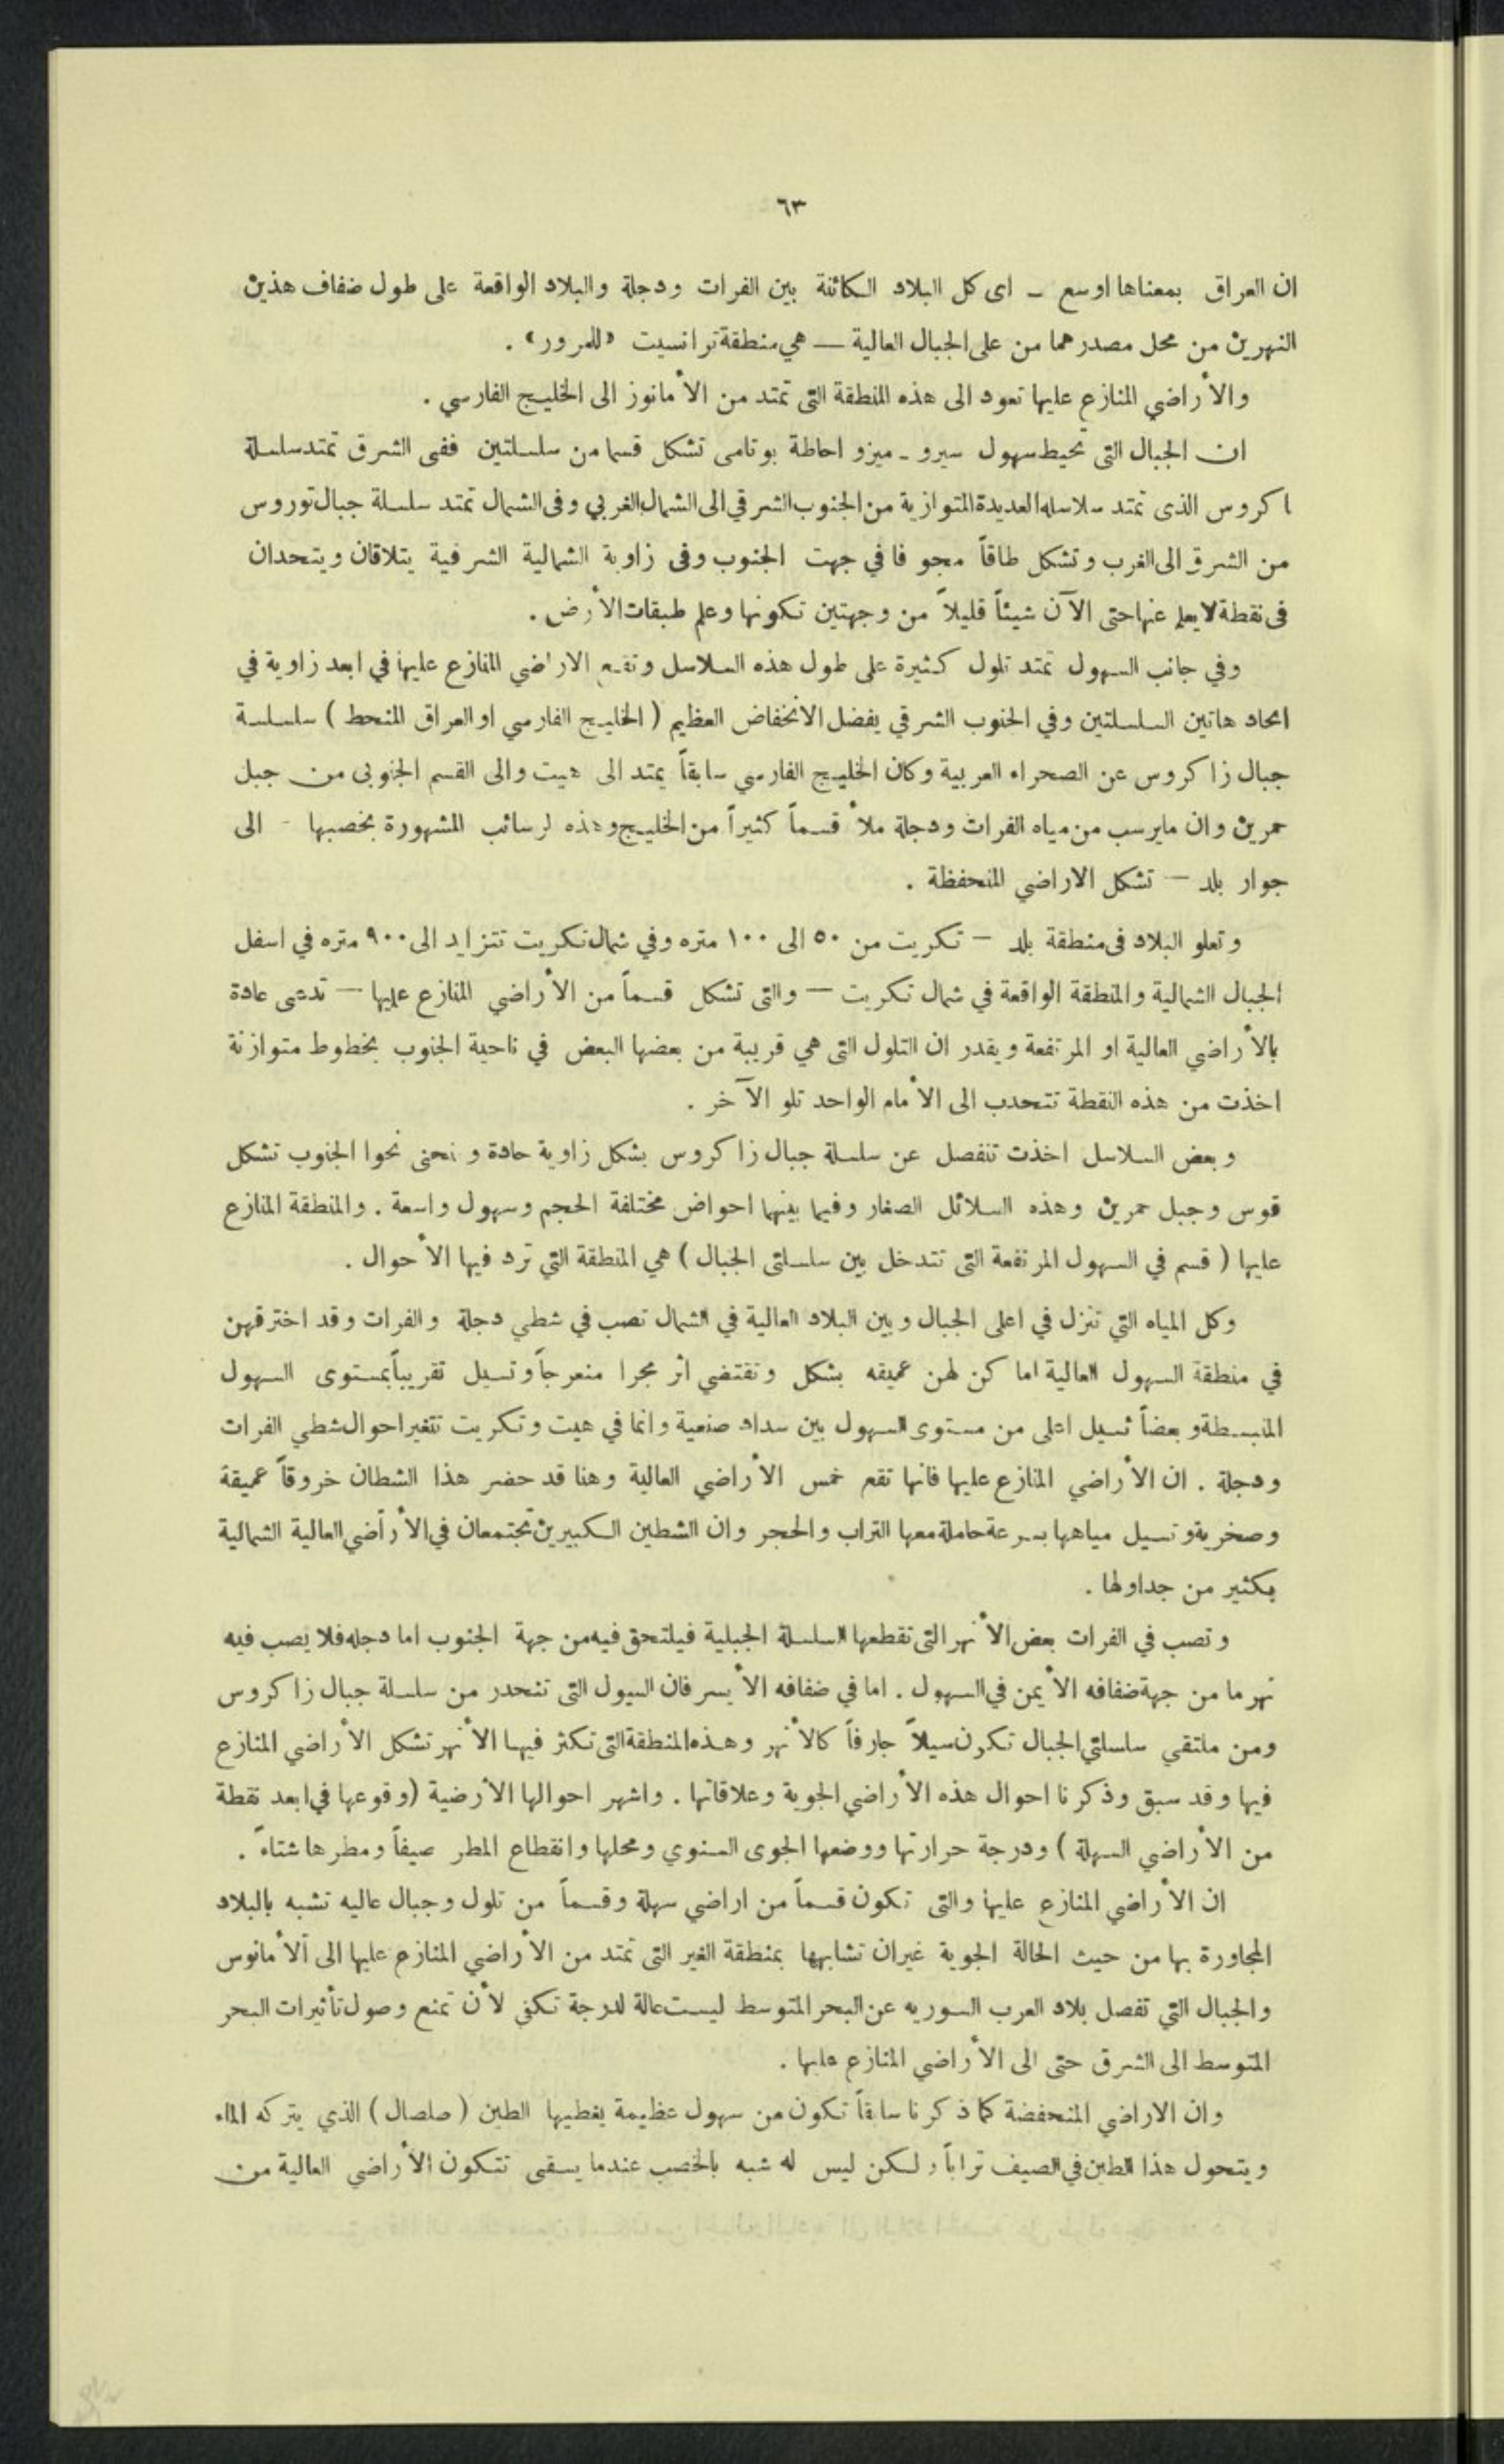 ٦٣
ان العراق بمعناها اوسع – اى كل البلاد الكائنة بين الفرات ودجلة والبلاد الواقعة على طول ضفاف هذين
النهرين من محل مصدرهما من على الجبال العالية — هي منطقة ترانسيت «للمرور» .
والأراضي المنازع عليها تعود الى هذه المنطقة التى تمتد من الأمانوز الى الخليج الفارسي .
ان الجبال التى تحيط سهول سيرو - ميزو احاطة بوتامى تشكل قسما من سلسلتين ففى الشرق تمتد سلسلة
اكروس الذى تمتد سلاسله العديدة المتوازية من الجنوب الشرقي الى الشمال الغربي وفى الشمال تمتد سلسلة جبال توروس
من الشرق الى الغرب وتشكل طاقاً مجوفا في جهت الجنوب وفى زاوية الشمالية الشرقية يتلاقان ويتحدان
فى نقطة لا يعلم عنها حتى الآن شيئاً قليلاً من وجهتين تكونها وعلم طبقات الأرض .
وفي جانب السهول تمتد تلول كثيرة على طول هذه السلاسل وتقع الاراضي المنازع عليها في ابعد زاوية في
اتحاد هاتين السلسلتين وفي الجنوب الشرقي يفضل الانخفاض العظيم ( الخليج الفارسي او العراق المنحط ) سلسلة
جبال زاكروس عن الصحراء العربية وكان الخليج الفارسي سابقاً يمتد الى هيت والى القسم الجنوبى من جبل
حمرين وان مايرسب من مياه الفرات ودجلة ملأ قسماً كثيراً من الخليج وهذه لرسائب المشهورة بخصبها - الى
جوار بلد — تشكل الاراضي المنحفظة .
وتعلو البلاد فى منطقة بلد — تكريت من ٥٠ الى ١٠٠ متره وفي شمال تكريت تتزايد الى ٩٠٠ متره في اسفل
الجبال الشمالية والمنطقة الواقعة في شمال تكريت — والتى تشكل قسماً من الأراضي المنازع عليها — تدعى عادة
بالأراضي العالية او المرتفعة ويقدر ان التلول التى هي قريبة من بعضها البعض في ناحية الجنوب بخطوط متوازنة
اخذت من هذه النقطة تتحدب الى الأمام الواحد تلو الآخر .
وبعض السلاسل اخذت تنفصل عن سلسلة جبال زاكروس بشكل زاوية حادة و نحنى نحوا الجنوب تشكل
قوس وجبل حمرين وهذه السلائل الصغار وفيما بينهما احواض مختلفة الحجم وسهول واسعة . والمنطقة المنازع
عليها ( قسم في السهول المرتفعة التى تتدخل بين سلسلتى الجبال ) هي المنطقة التي ترد فيها الأحوال .
وكل المياه التي تنزل في اعلى الجبال وبين البلاد العالية في الشمال تصب في شطي دجلة والفرات وقد اخترقهن
في منطقة السهول العالية اما كن لهن عميقه بشكل وتقتضي اثر مجرا منعرجاً وتسيل تقريباً بمستوى السهول
المنبسطة وبعضاً تسيل اعلى من مستوى السهول بين سداد صنعية وانما في هيت وتكريت تتغير احوال شطي الفرات
ودجلة . ان الأراضي المنازع عليها فانها تقع خمس الأراضي العالية وهنا قد حضر هذا الشطان خروقاً عميقة
وصخرية وتسيل مياهها بسرعة حاملة معها التراب والحجر وان الشطين الكبيرين تجتمعان في الأراضي العالية الشمالية
بكثير من جداولها .
وتصب في الفرات بعض الأنهر التى تقطعها السلسلة الجبلية فيلتحق فيه من جهة الجنوب اما دجله فلا يصب فيه
نهر ما من جهة ضفافه الأيمن في السهول . اما في ضفافه الأيسر فان السيول التى تنحدر من سلسلة جبال زاكروس
ومن ملتقي سلسلتي الجبال تكون سيلاً جارفاً كالأنهر وهذه المنطقة التى تكثر فيها الأنهر تشكل الأراضي المنازع
فيها وقد سبق وذكرنا احوال هذه الأراضي الجوية وعلاقاتها . واشهر احوالها الأرضية (وقوعها في ابعد نقطة
من الأراضي السهلة ) ودرجة حرارتها ووضعها الجوى السنوي ومحلها وانقطاع المطر صيفاً ومطرها شتاءً .
ان الأراضي المنازع عليها والتى تكون قسماً من اراضي سهلة وقسماً من تلول وجبال عاليه تشبه بالبلاد
المجاورة بها من حيث الحالة الجوية غيران تشابهها بمنطقة الغير التى تمتد من الأراضي المنازع عليها الى ألأمانوس
والجبال التي تفصل بلاد العرب السوريه عن البحر المتوسط ليست عالة لدرجة تكفي لأن تمنع وصول تأثيرات البحر
المتوسط الى الشرق حتى الى الأراضي المنازع عليها .
وان الاراضي المنحفضة كما ذكرنا سابقاً تكون من سهول عظيمة يغطيها الطين ( صلصال ) الذي يتركه الماء
ويتحول هذا الطين في الصيف تراباً ولكن ليس له شبه بالخصب عندما يسقى تتكون الأراضي العالية من